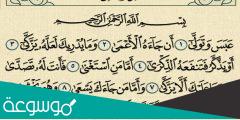 بِسْمِ اللَّهِ الرَّحْمَٰنِ الرَّحِيمِ
عَبَسَ وَتَوَلَّىٰ ١ أَن جَاءَهُ الْأَعْمَىٰ ٢ وَمَا يُدْرِيكَ لَعَلَّهُ يَزَّكَّىٰ ٣
أَوْ يَذَّكَّرُ فَتَنفَعَهُ الذِّكْرَىٰ ٤ أَمَّا مَنِ اسْتَغْنَىٰ ٥ فَأَنتَ لَهُ تَصَدَّىٰ
عَلَيْكَ أَلَّا يَزَّكَّىٰ ٧ وَأَمَّا مَن جَاءَكَ يَسْعَىٰ ٨ وَهُوَ
موسوعة